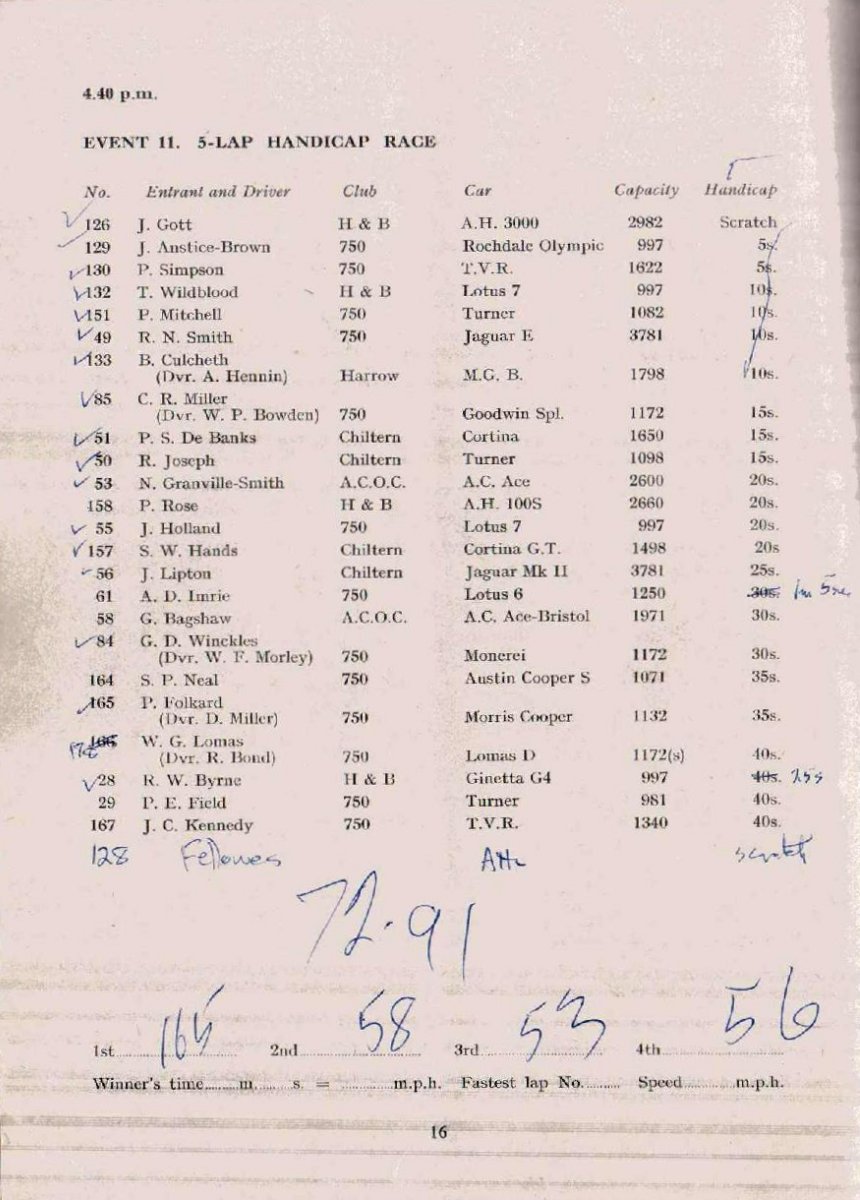 4.40 p.m.
EVENT 11. 5-LAP HANDICAP RACE
No. Entrant and Driver Club Car Capacity Handicap
126 J. Gott H & B A.H. 3000 2982 Scratch
129 J. Anstice-Brown 750 Rochdale Olympic 997 5s.
130 P. Simpson 750 T.V.R. 1622 5s.
132 T. Wildblood H & B Lotus 7 997 10s.
151 P. Mitchell 750 Turner 1082 10s.
49 R. N. Smith 750 Jaguar E 3781 10s.
133 B. Culcheth
(Dvr. A. Hennin) Harrow M.G. B. 1798 10s.
85 C. R. Miller
(Dvr. W. P. Bowden) 750 Goodwin Spl. 1172 15s.
51 P. S. De Banks Chiltern Cortina 1650 15s.
50 R. Joseph Chiltern Turner 1098 15s.
53 N. Granville-Smith A.C.O.C. A.C. Ace 2600 20s.
158 P. Rose H & B A.H. 100S 2660 20s.
55 J. Holland 750 Lotus 7 997 20s.
157 S. W. Hands Chiltern Cortina G.T. 1498 20s
56 J. Lipton Chiltern Jaguar Mk II 3781 25s.
61 A. D. Imrie 750 Lotus 6 1250 30s. 1m 5sec
58 G. Bagshaw A.C.O.C. A.C. Ace-Bristol 1971 30s.
84 G. D. Winckles
(Dvr. W. F. Morley) 750 Monerei 1172 30s.
164 S. P. Neal 750 Austin Cooper S 1071 35s.
165 P. Folkard
(Dvr. D. Miller) 750 Morris Cooper 1132 35s.
166 W. G. Lomas
(Dvr. R. Bond) 750 Lomas D 1172(s) 40s.
28 R. W. Byrne H & B Ginetta G4 997 40s. 25s
29 P. E. Field 750 Turner 981 40s.
167 J. C. Kennedy 750 T.V.R. 1340 40s.
128 Fellowes scratch
72.91
1st 165 2nd 58 3rd 53 4th 56
Winner's time......m......s. = .........m.p.h. Fastest lap No....... Speed.........m.p.h.
16